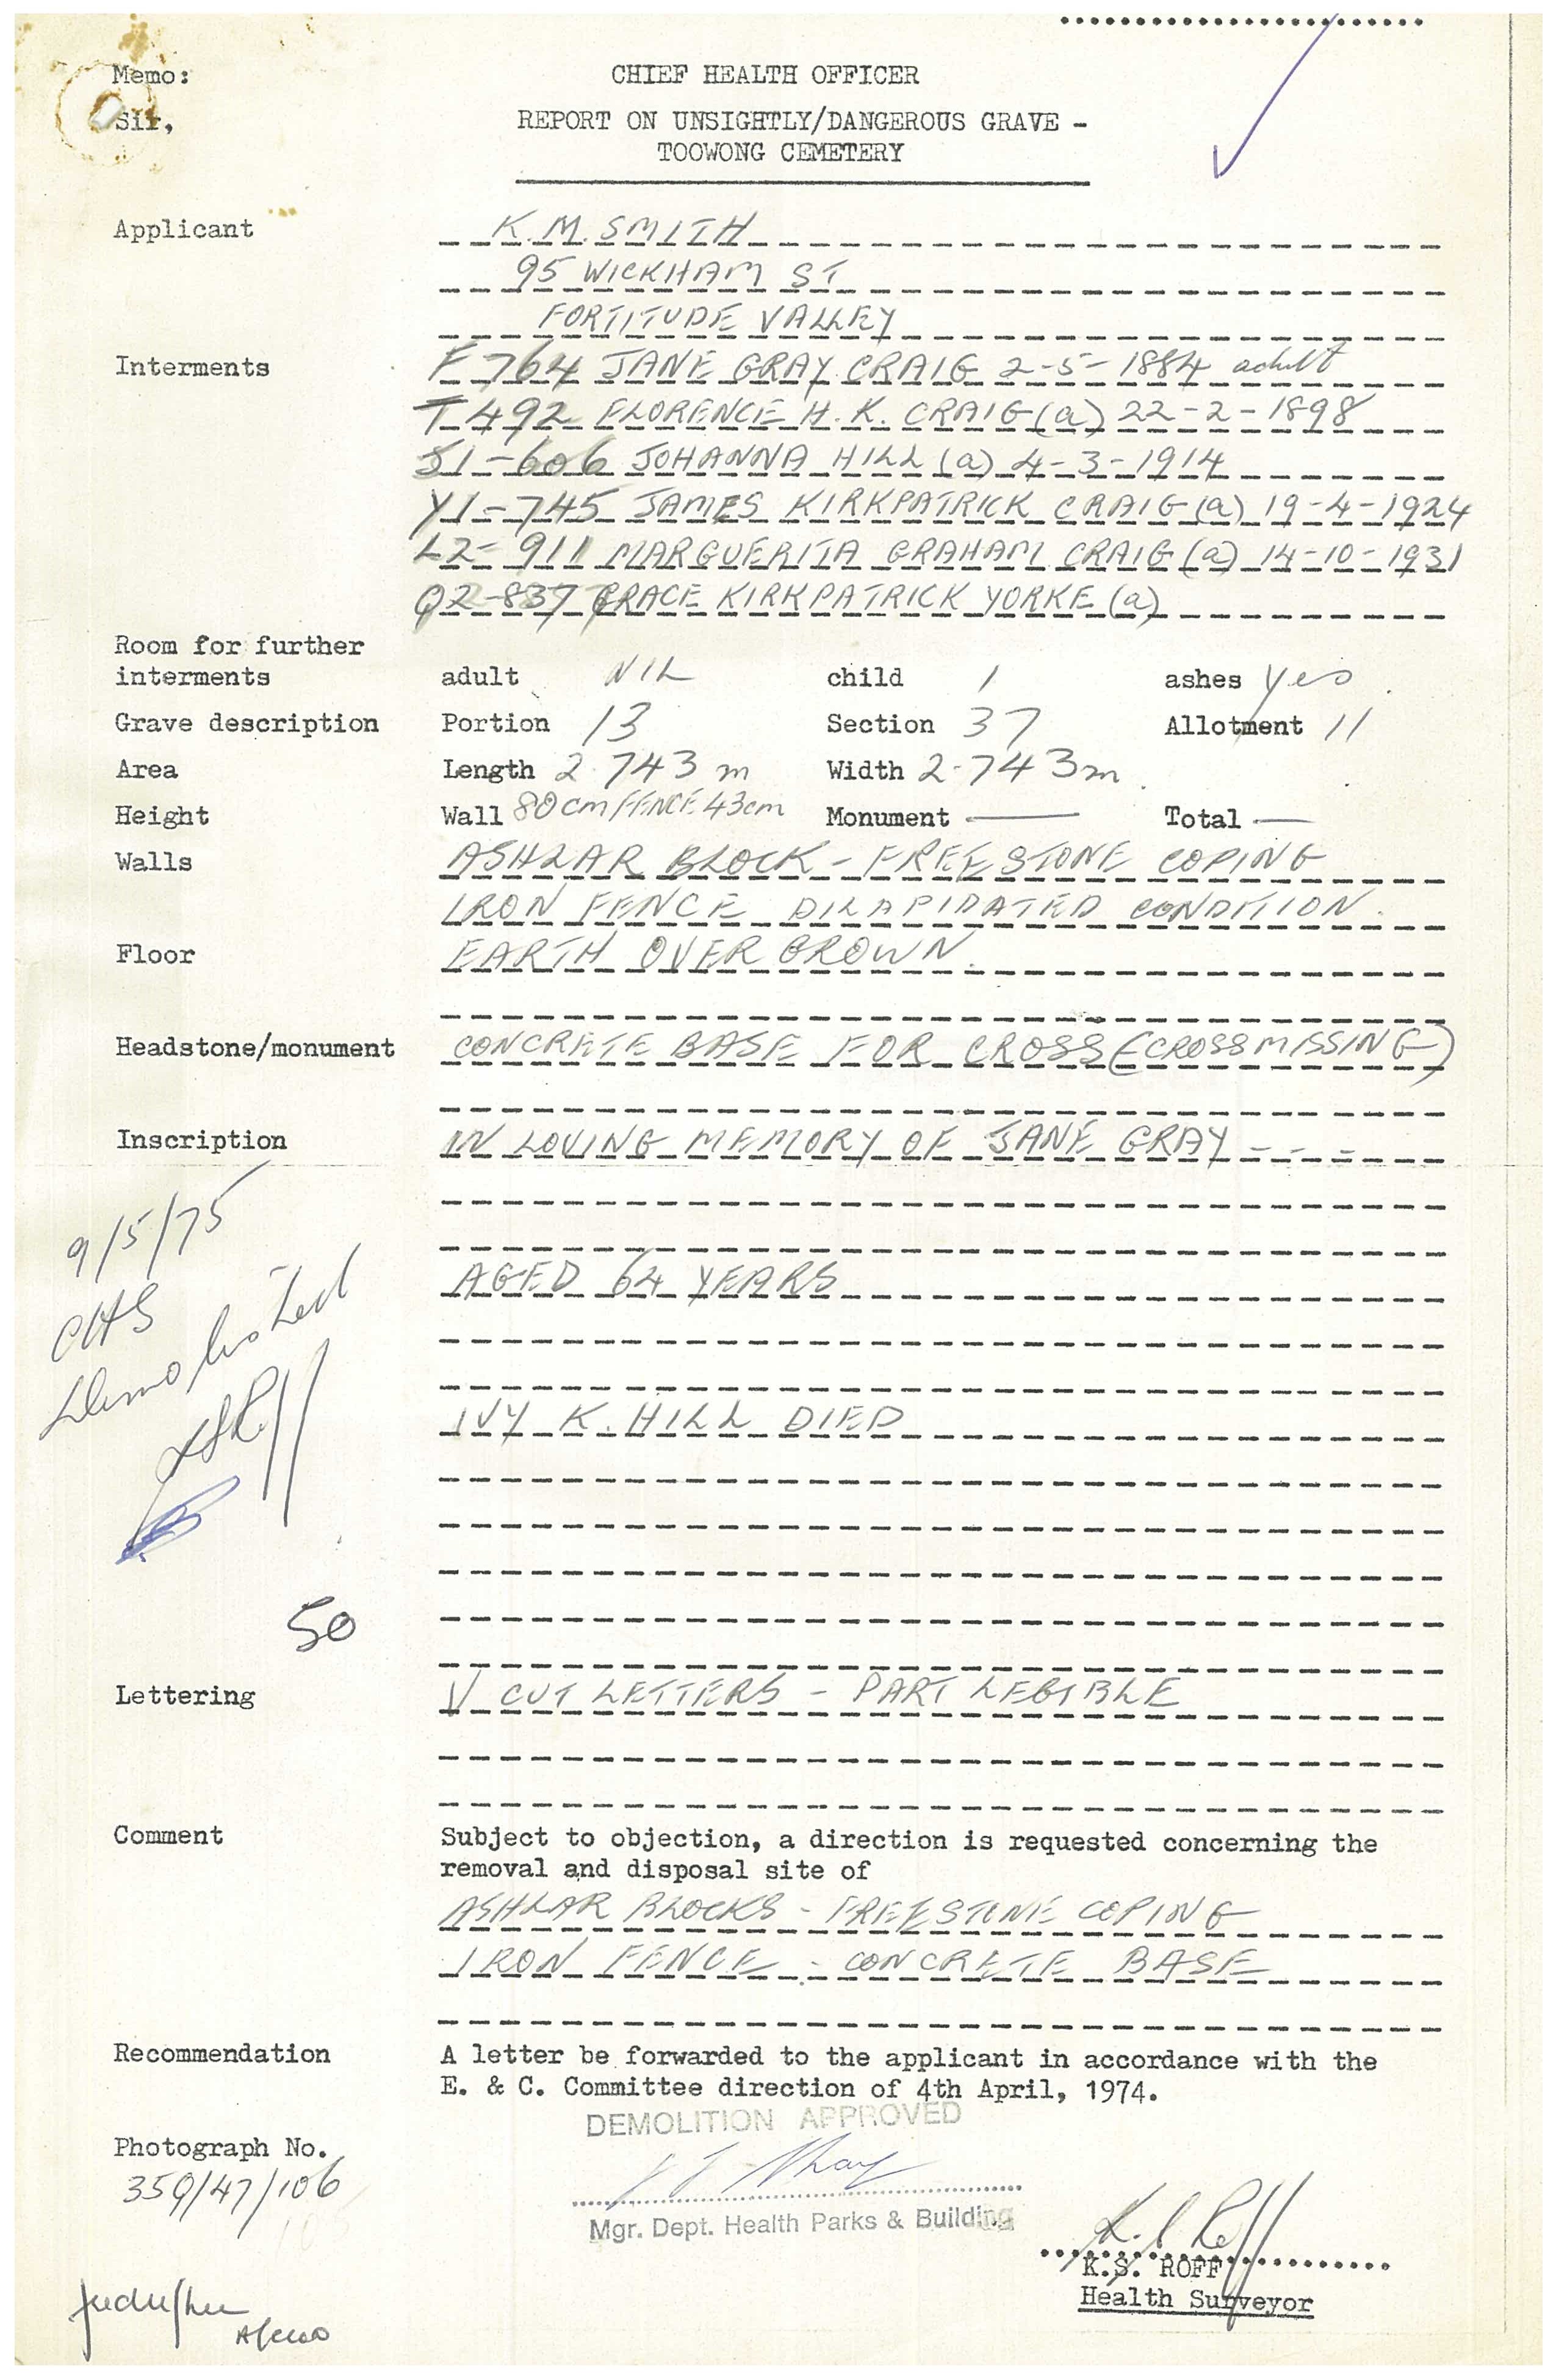 Memo:
CHIEF HEALTH OFFICER
Sir,
REPORT ON UNSIGHTLY/DANGEROUS GRAVE -
TOOWONG CEMETERY
Applicant K.M. SMITH
95 WICKHAM ST
FORTITUDE VALLEY
Interments F 764 JANE GRAY CRAIG 2-5-1884 adult
T 492 FLORENCE H. K. CRAIG (a) 22-2-1898
S1-606 JOHANNA HILL (a) 4-3-1914
Y1-745 JAMES KIRKPATRICK CRAIG (a) 19-4-1924
L2-911 MARGUERITA GRAHAM CRAIG (a) 14-10-1931
Q2-837 GRACE KIRKPATRICK YORKE (a)
Room for further
interments adult NIL child 1 ashes yes
Grave description Portion 13 Section 37 Allotment 11
Area Length 2.743 m Width 2.743m
Height Wall 80cm FENCE 43cm Monument — Total —
Walls ASHLAR BLOCK - FREESTONE COPING
IRON FENCE DILAPIDATED CONDITION.
Floor EARTH OVER GROWN.
Headstone/monument CONCRETE BASE FOR CROSS (CROSS MISSING)
Inscription IN LOVING MEMORY OF JANE GRAY - - -
9/5/75
AGED 64 YEARS
CHS
Demolished
IVY K. HILL DIED
50
Lettering V CUT LETTERS - PART LEGIBLE
Comment Subject to objection, a direction is requested concerning the
removal and disposal site of
ASHLAR BLOCKS - FREESTONE COPING
IRON FENCE - CONCRETE BASE
Recommendation A letter be forwarded to the applicant in accordance with the
E. & C. Committee direction of 4th April, 1974.
DEMOLITION APPROVED
Photograph No.
359/47/106
Mgr. Dept. Health Parks & Building
K.S. ROFF
Health Surveyor